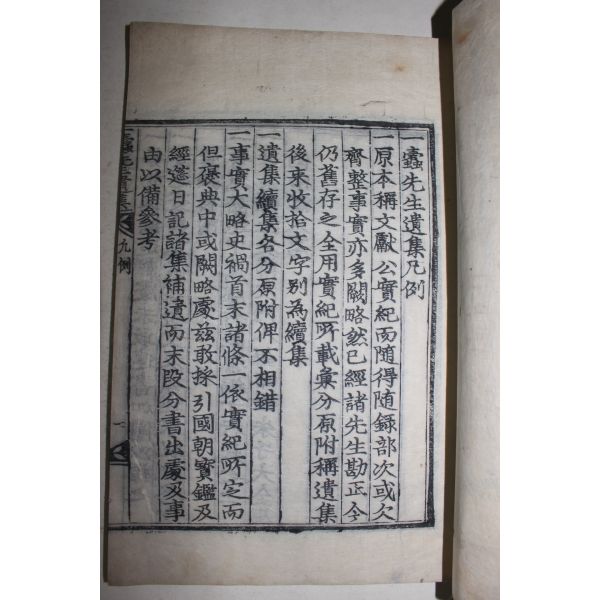 一蠹先生遺集凡例
一原本稱文獻公實紀而隨得隨錄部次或欠
齊整事實亦多闕略然已經諸先生勘正今
仍舊存之全用實紀所載彙分原附稱遺集
後來收拾文字別為續集
一遺集續集各分原附俾不相錯
一事實大略史禍首末諸條一依實紀所定而
但褒典中或闕略處玆敢採引國朝寶鑑及
經筵日記諸集補遺而末段分書出處及事
由以備參考
一蠹先生遺集
凡例
一